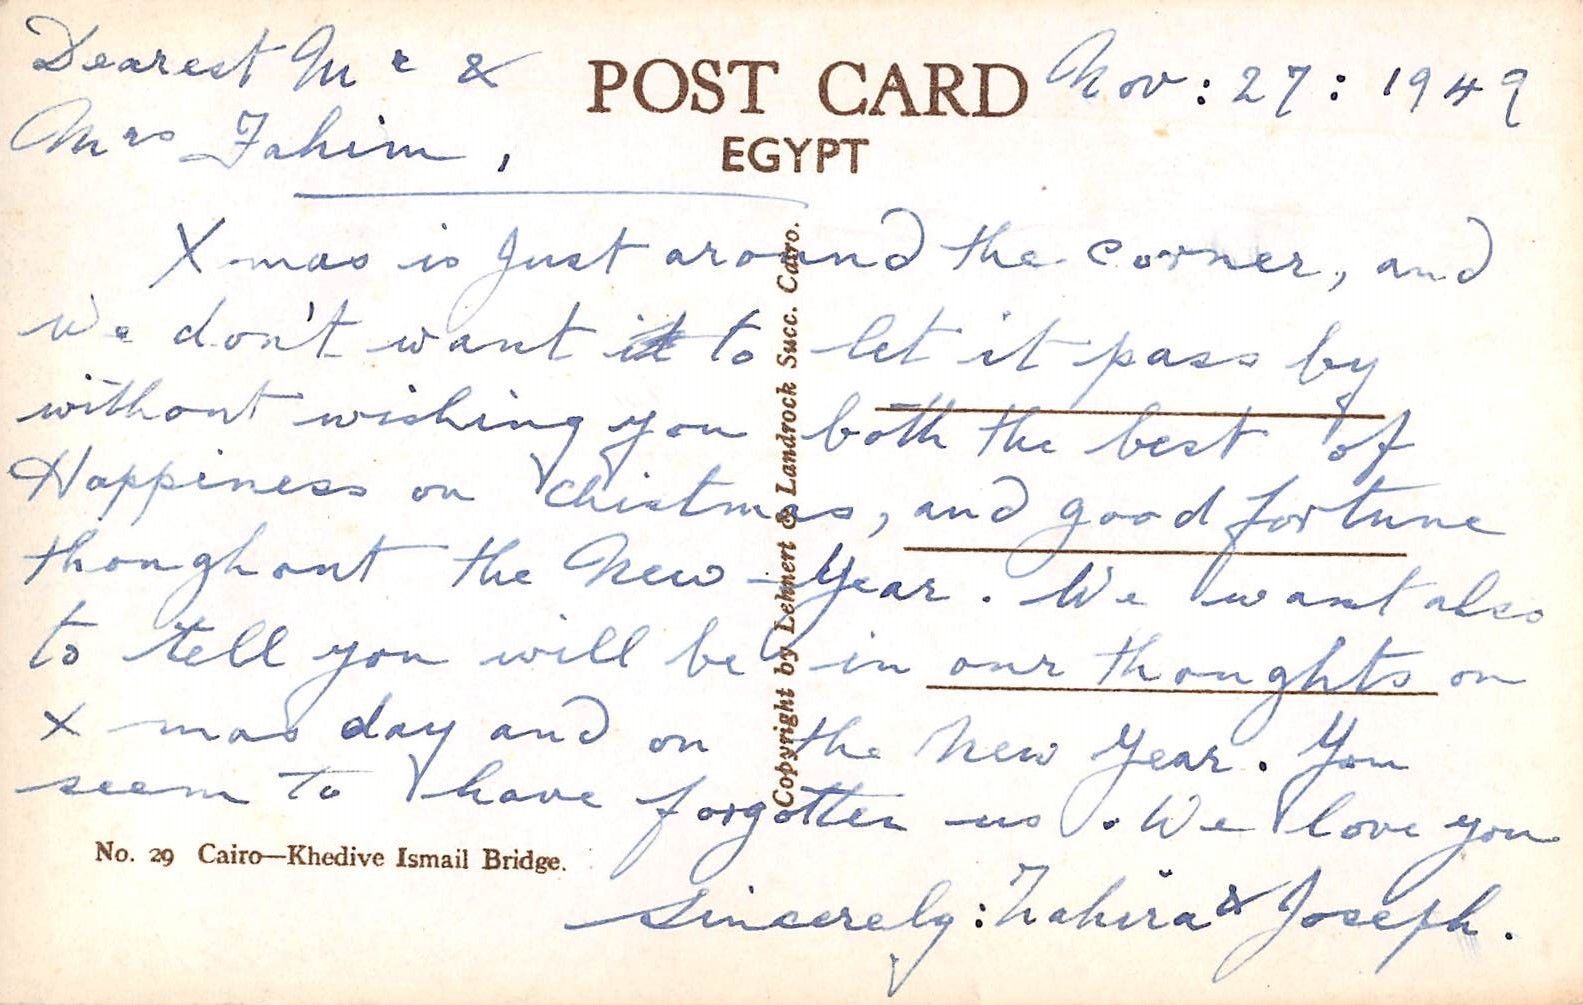 Dearest Mr &
Mrs Fahim,
POST CARD
EGYPT
Nov: 27: 1949
Xmas is Just around the corner, and
we don't want it to let it pass by
without wishing you both the best of
Happiness on Chistmas, and good fortune
thoughout the New-Year. We want also
to tell you will be in our thoughts on
X mas day and on the New Year. You
seem to have forgotten us. We love you
Sincerely: Zahira & Joseph.
No. 29 Cairo—Khedive Ismail Bridge.
Copyright by Lehnert & Landrock Succ. Cairo.